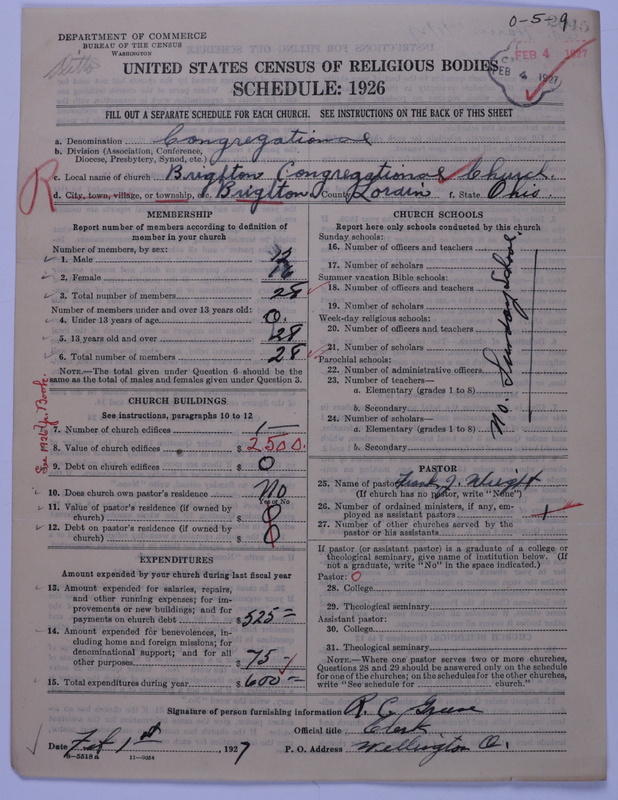 0-5-9
DEPARTMENT OF COMMERCE
BUREAU OF THE CENSUS
WASHINGTON
FEB 4 1927
FEB 4 1927
UNITED STATES CENSUS OF RELIGIOUS BODIES
SCHEDULE: 1926
FILL OUT A SEPARATE SCHEDULE FOR EACH CHURCH. SEE INSTRUCTIONS ON THE BACK OF THIS SHEET
a. Denomination Congregational
b. Division (Association, Conference, Diocese, Presbytery, Synod, etc.)
c. Local name of church Brighton Congregational Church.
d. City, town, village, or township, etc. Brighton County Lorain f. State Ohio.
MEMBERSHIP
Report number of members according to definition of member in your church
Number of members, by sex:
1. Male 12
2. Female 16
3. Total number of members 28
Number of members under and over 13 years old:
4. Under 13 years of age 0.
5. 13 years old and over 28
6. Total number of members 28
NOTE.—The total given under Question 6 should be the same as the total of males and females given under Question 3.
See 1926 Yr. Book.
CHURCH BUILDINGS
See instructions, paragraphs 10 to 12
7. Number of church edifices 1
8. Value of church edifices $ 2500.
9. Debt on church edifices $ 0
10. Does church own pastor's residence No
Yes or No
11. Value of pastor's residence (if owned by church) $ 0
12. Debt on pastor's residence (if owned by church) $ 0
EXPENDITURES
Amount expended by your church during last fiscal year
13. Amount expended for salaries, repairs, and other running expenses; for improvements or new buildings; and for payments on church debt $ 525=
14. Amount expended for benevolences, including home and foreign missions; for denominational support; and for all other purposes $ 75-
15. Total expenditures during year $ 600=
CHURCH SCHOOLS
Report here only schools conducted by this church
Sunday schools:
16. Number of officers and teachers
17. Number of scholars
Summer vacation Bible schools:
18. Number of officers and teachers
19. Number of scholars
Week-day religious schools:
20. Number of officers and teachers
21. Number of scholars
Parochial schools:
22. Number of administrative officers
23. Number of teachers—
a. Elementary (grades 1 to 8)
b. Secondary
24. Number of scholars—
a. Elementary (grades 1 to 8)
b. Secondary
No. Sunday School.
PASTOR
25. Name of pastor Frank J. Wright
(If church has no pastor, write "None")
26. Number of ordained ministers, if any, employed as assistant pastors
27. Number of other churches served by the pastor or his assistants 1
If pastor (or assistant pastor) is a graduate of a college or theological seminary, give name of institution below. (If not a graduate, write "No" in the space indicated.)
Pastor: 0
28. College
29. Theological seminary
Assistant pastor:
30. College
31. Theological seminary
NOTE.—Where one pastor serves two or more churches, Questions 28 and 29 should be answered only on the schedule for one of the churches; on the schedules for the other churches, write "See schedule for church."
Signature of person furnishing information R. C.
Official title Clerk
Date Feb 1st, 1927 P. O. Address Wellington O.
8-5518a 11-9054